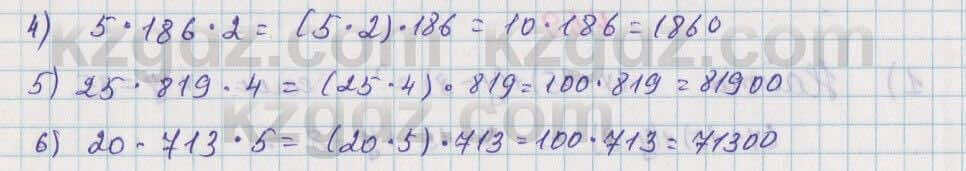 4) 5 · 186 · 2 = (5 · 2) · 186 = 10 · 186 = 1860
5) 25 · 819 · 4 = (25 · 4) · 819 = 100 · 819 = 81900
6) 20 · 713 · 5 = (20 · 5) · 713 = 100 · 713 = 71300
kzgdz.com